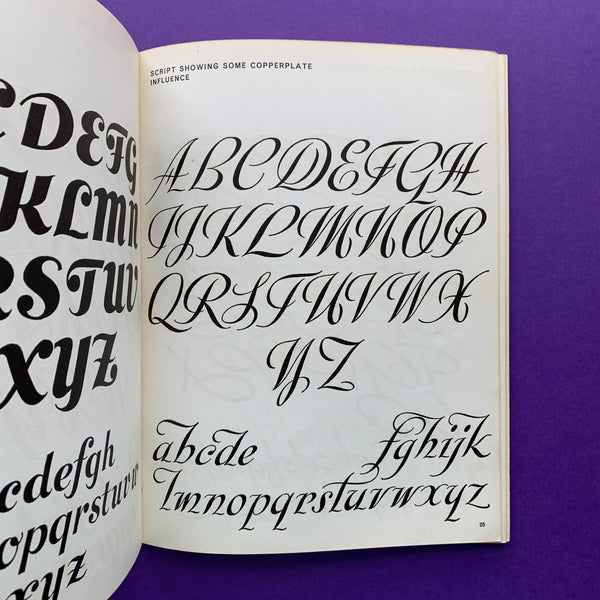 CDEFG
KLMN
RSTUV
XYZ
cdefgh
opqrstuvw
xyz
SCRIPT SHOWING SOME COPPERPLATE
INFLUENCE
ABCDEFGH
IJKLMNOP
QRSTUVWX
YZ
abcde fghijk
lmnopqrstuvwxyz
25